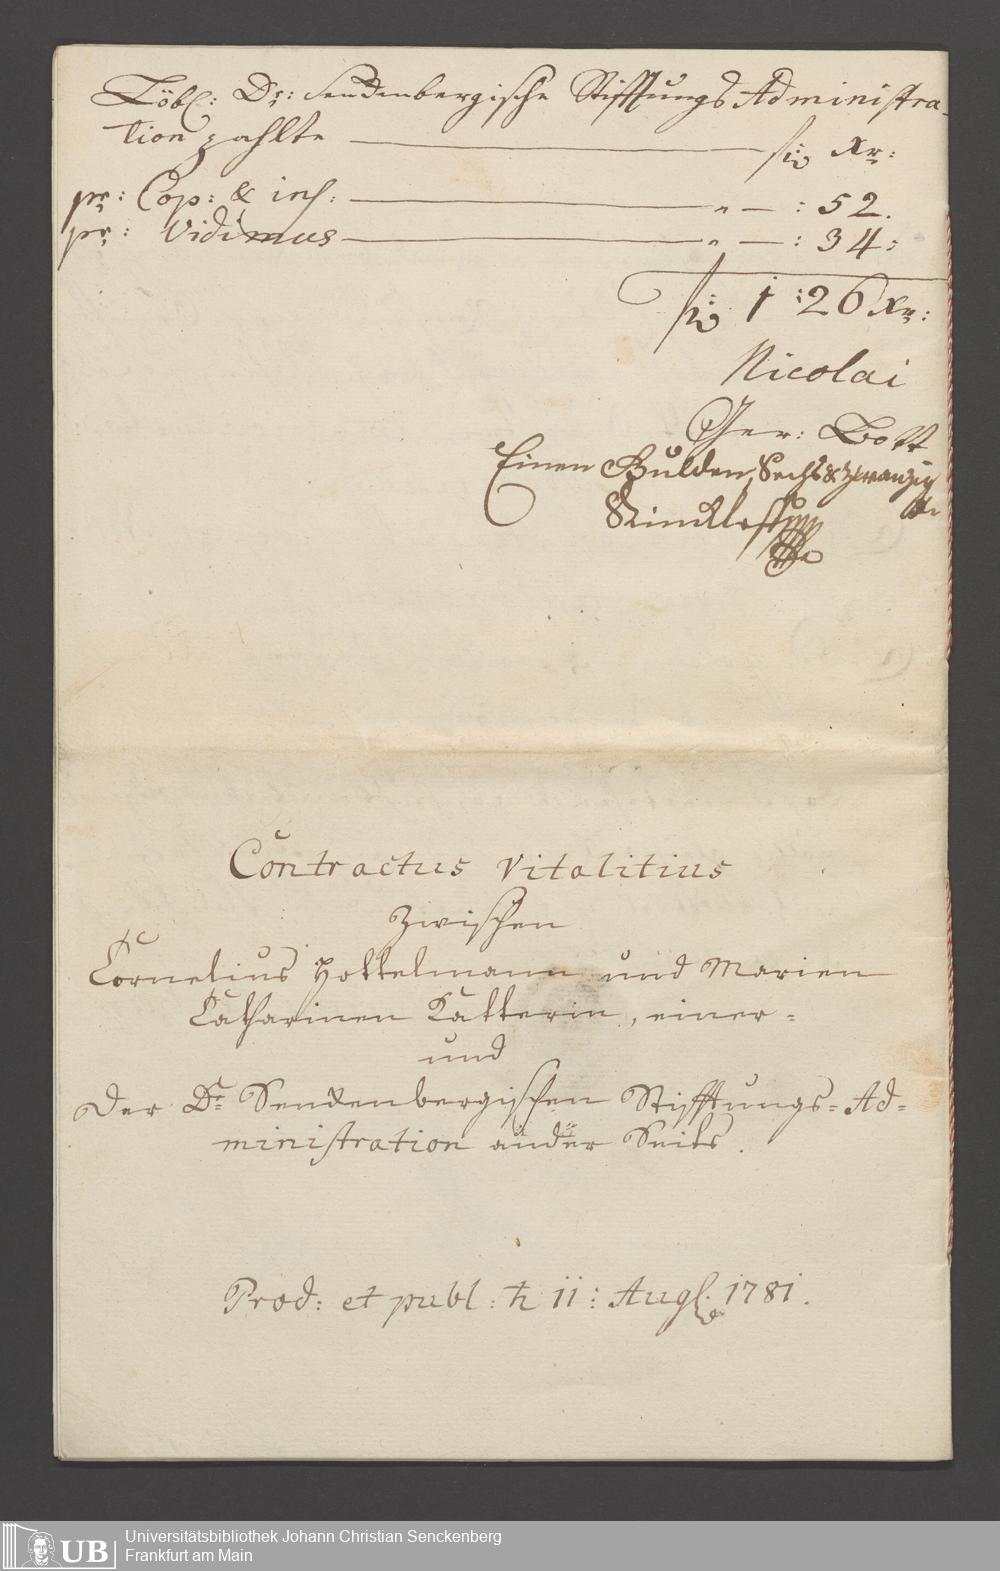 Löbl: Dr: Senckenbergische Stifftungs Administra-
tion zahlte — fl. Xr:
pr: Cop: & ins: — " — : 52.
pr: Vidimus — " — : 34:
fl. 1 : 26 Xr:
Nicolai
Ger: Bott
Einen Gulden, Sechs & zwanzig
Contractus Vitalitius
zwischen
Cornelius Hottelmann und Marien
Catharinen Katterin, einer-
und
der Dr. Senckenbergischen Stifftungs-Ad-
ministration ander Seits.
Prod: et publ: ♄ 11: Aug. 1781.
UB
Universitätsbibliothek Johann Christian Senckenberg
Frankfurt am Main